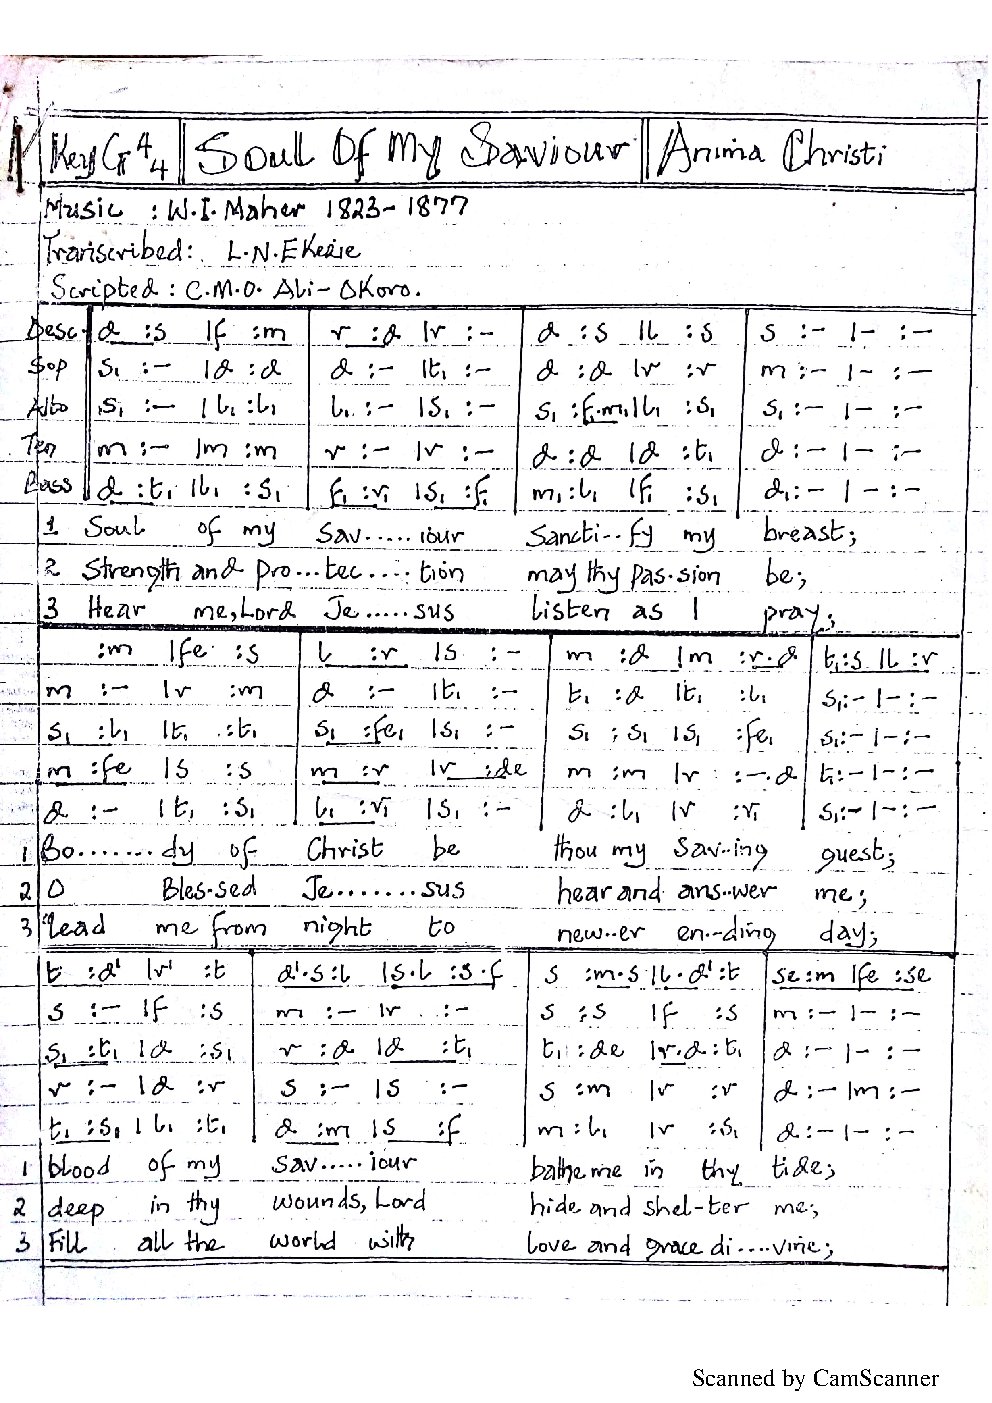 Key G 4/4 Soul Of My Saviour Anima Christi
Music : W.I. Maher 1823-1877
Transcribed: L.N.Ekezie
Scripted : C.M.O. Ali-Okoro.
Desc. d :s |f :m r :d |r :- d :s |l :s s :- |- :-
Sop s₁ :- |d :d d :- |t₁ :- d :d |r :r m :- |- :-
Alto s₁ :- |l₁ :l₁ l₁ :- |s₁ :- s₁ :f₁.m₁|l₁ :s₁ s₁ :- |- :-
Ten m :- |m :m r :- |r :- d :d |d :t₁ d :- |- :-
Bass d :t₁ |l₁ :s₁ f₁ :r₁ |s₁ :f₁ m₁ :l₁ |f₁ :s₁ d₁ :- |- :-
1 Soul of my Sav.....iour Sancti..fy my breast;
2 Strength and pro...tec....tion may thy pas.sion be;
3 Hear me, Lord Je.....sus listen as I pray;
:m |fe :s l :r |s :- m :d |m :r.d t₁:s |l :r
m :- |r :m d :- |t₁ :- t₁ :d |t₁ :l₁ s₁:- |- :-
s₁ :l₁ |t₁ :t₁ s₁ :fe₁ |s₁ :- s₁ ; s₁ |s₁ :fe₁ s₁:- |- :-
m :fe |s :s m :r |r :de m :m |r :-.d t₁:- |- :-
d :- |t₁ :s₁ l₁ :r₁ |s₁ :- d :l₁ |r :r₁ s₁:- |- :-
1 Bo........dy of Christ be thou my Sav..ing guest;
2 O Bles.sed Je........sus hear and ans..wer me;
3 lead me from night to new..er en..ding day;
t :d' |r' :t d'.s:l |s.l :s.f s :m.s|l.d':t se:m |fe :se
s :- |f :s m :- |r :- s ;s |f :s m :- |- :-
s₁ :t₁ |d :s₁ r :d |d :t₁ t₁ :de |r.d :t₁ d :- |- :-
r :- |d :r s :- |s :- s :m |r :r d :- |m :-
t₁ :s₁ |l₁ :t₁ d :m |s :f m :l₁ |r :s₁ d :- |- :-
1 blood of my Sav.....iour bathe me in thy tide;
2 deep in thy wounds, Lord hide and shel-ter me;
3 Fill all the world with love and grace di....vine;
Scanned by CamScanner